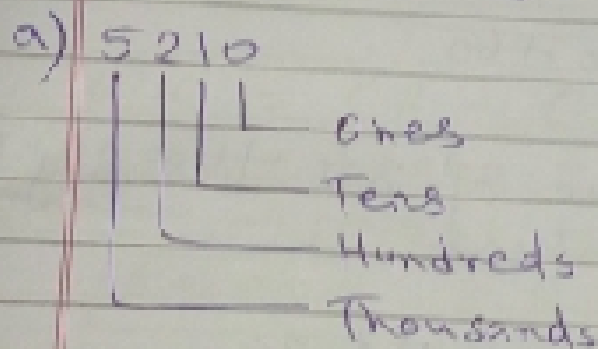 a) 5210
Ones
Tens
Hundreds
Thousands